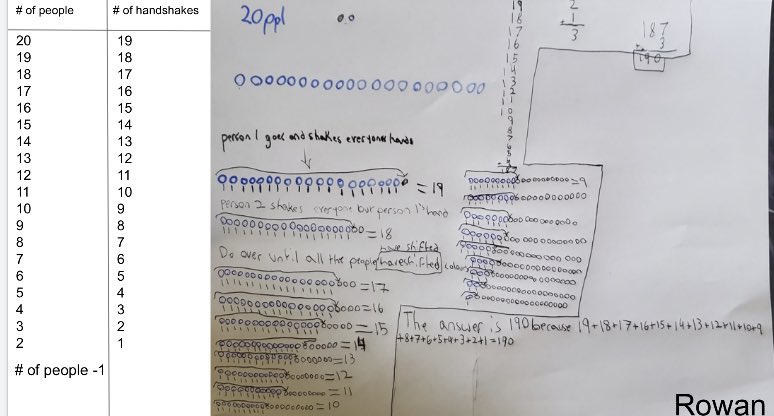 # of people # of handshakes
20 19
19 18
18 17
17 16
16 15
15 14
14 13
13 12
12 11
11 10
10 9
9 8
8 7
7 6
6 5
5 4
4 3
3 2
2 1
# of people -1
20 ppl
person 1 goes and shakes everyones hands
= 19
person 2 shakes everyone but person 1's hand
= 18
have shifted
Do over until all the people have shifted colors
= 17
= 16
= 15
= 14
= 13
= 12
= 11
= 10
19
18
17
16
15
14
13
12
11
10
9
8
7
6
5
2
+ 1
3
187
+ 3
190
= 9
The answer is 190 because 19+18+17+16+15+14+13+12+11+10+9
+8+7+6+5+4+3+2+1=190
Rowan